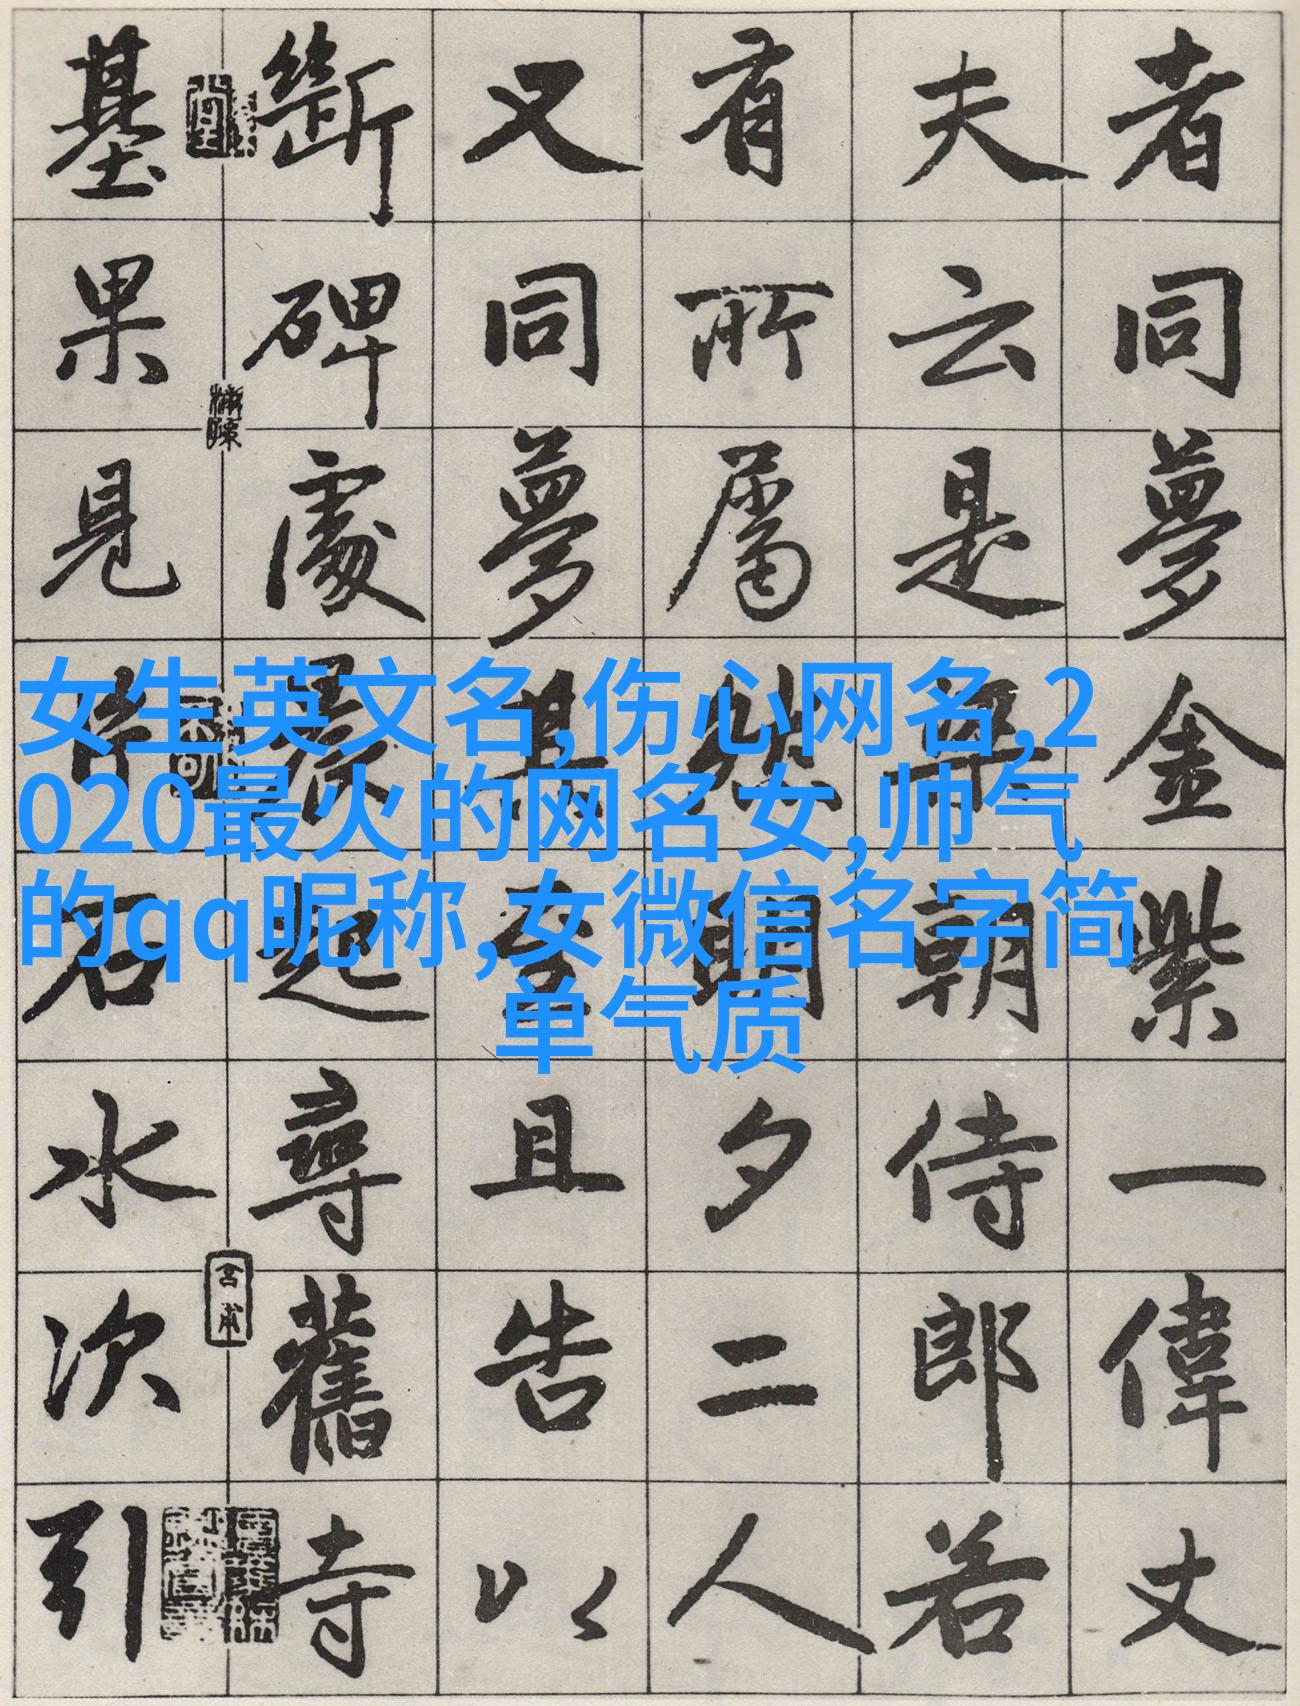 者同夢金紫一偉丈
夫云是朝侍郎若
有所屬然明夕二人
又同夢其言且告以
斷碑處晨起尋舊寺
基果見石水次引
女生英文名,伤心网名,2
020最火的网名女,帅气
的qq昵称,女微信名字简
单气质